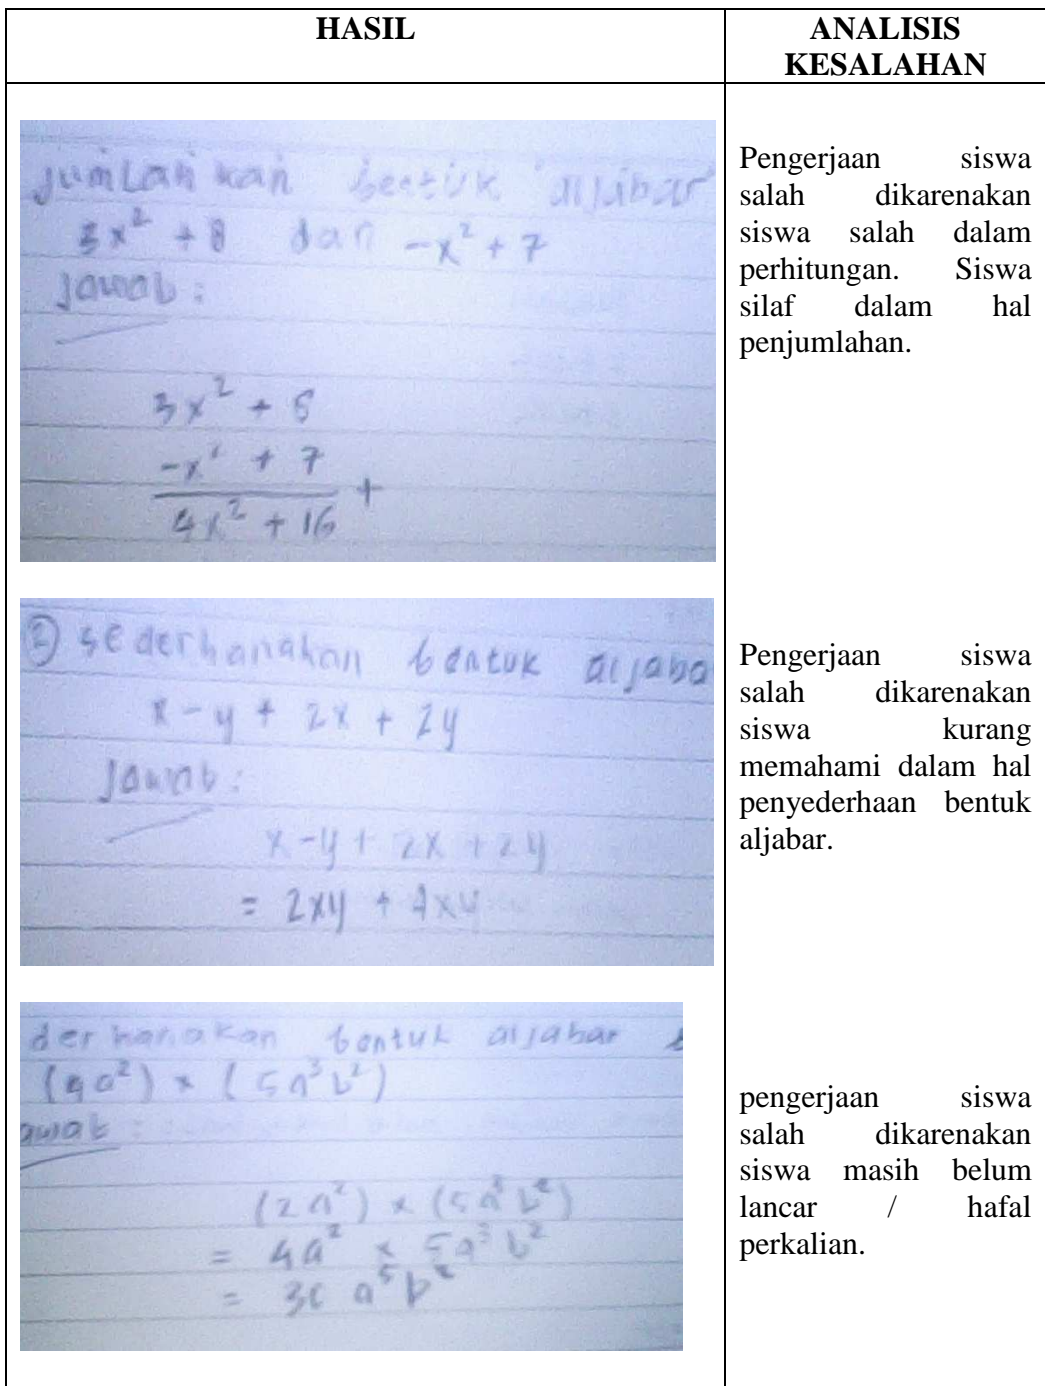 HASIL
ANALISIS
KESALAHAN
jumlah kan bentuk aljabar
3x² + 8 dan -x² + 7
Jawab :
3x² + 8
-x² + 7
+
4x² + 16
Pengerjaan siswa
salah dikarenakan
siswa salah dalam
perhitungan. Siswa
silaf dalam hal
penjumlahan.
sederhanakan bentuk aljaba
x - y + 2x + 2y
Jawab :
x - y + 2x + 2y
= 2xy + 4xy
Pengerjaan siswa
salah dikarenakan
siswa kurang
memahami dalam hal
penyederhaan bentuk
aljabar.
derhanakan bentuk aljabar
(4a²) × (5a³b²)
awab :
(2a²) × (5a³b²)
= 4a² × 5a³b²
= 30 a⁵b²
pengerjaan siswa
salah dikarenakan
siswa masih belum
lancar / hafal
perkalian.